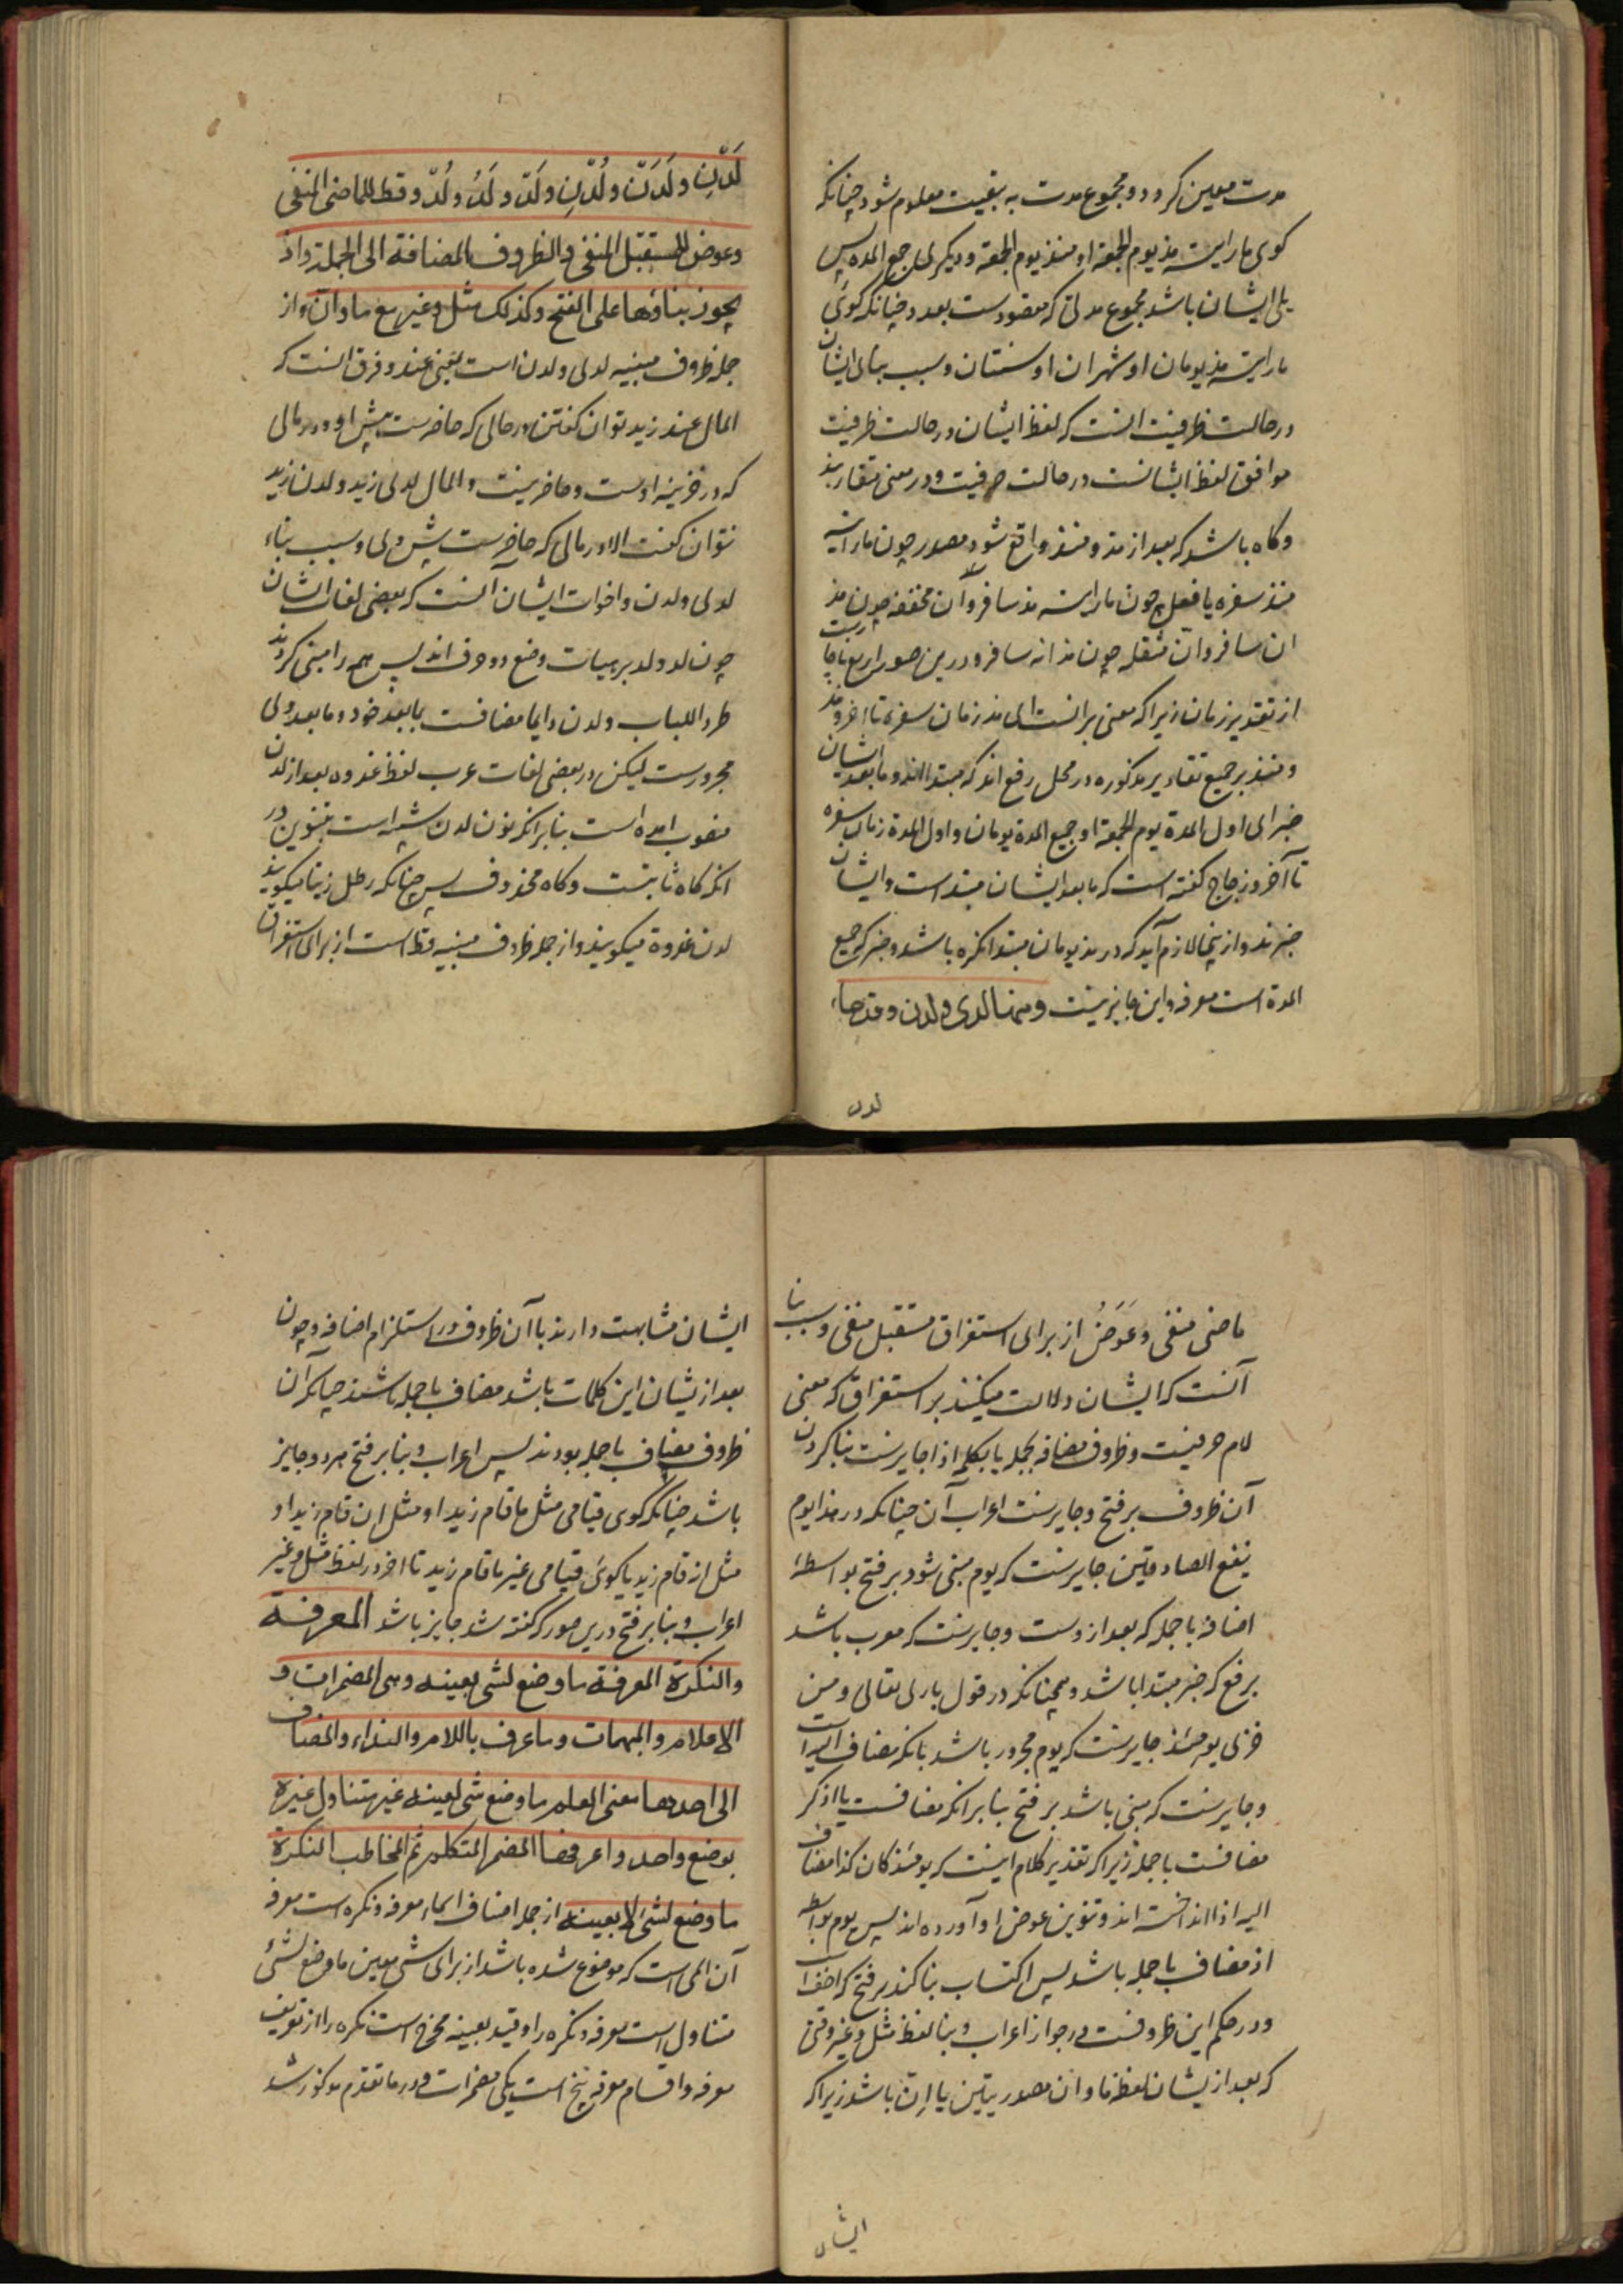 مدت معین کردد و مجموع مدت به تبعیت معلوم شود چنانکه
کوی ما رایته مذ یوم الجمعة او منذ یوم الجمعة و دیکر لی جمع المده پس
یلی ایشان باشد مجموع مدتی که مقصودست بعدد چنانکه کوئی
ما رایته مذ یومان او شهران او سنتان و سبب بنای ایشان
در حالت ظرفیت انست که لفظ ایشان در حالت ظرفیت
موافق لفظ ایشانست در حالت حرفیت و در معنی متقاربند
و کاه باشد که بعد از مذ و منذ واقع شود مصدر چون ما رایته
منذ سفره یا فعل چون ما رایته مذ سافر و ان مخففه چون مذ
ان سافر و انّ مثقله چون مذ انه سافر و درین صور اربع ناچارست
از تقدیر زمان زیرا که معنی برانست ای مذ زمان سفره تا اخر و مذ
و منذ بر جمیع تقادیر مذکوره در محل رفع اند که مبتدااند و ما بعد ایشان
خبر ای اول المدة یوم الجمعة او جمیع المدة یومان و اول المدة زمان سفره
تا آخر و زجاج کفته است که ما بعد ایشان مبتداست و ایشان
خبرند و از ینجا لازم آید که در مذ یومان مبتدا نکره باشد و خبر که جمیع
المدة است معرفه و این جایز نیست ومنها لدی و لدن وقد جاء
لدن
لَدَنِ ولَدَنْ ولُدْنِ ولَدْ ولَدُ ولُدْ وقط للماضی المنفی
وعوض للمستقبل المنفی والظروف المضافة الی الجملة واذ
یجوز بناؤها علی الفتح وکذلک مثل وغیر مع ما وان واز
جمله ظروف مبنیه لدی و لدن است بمعنی عند و فرق انست که
المال عند زید توان کفتن در حالی که حاضرست پیش او و در مالی
که در خزینه اوست و حاضر نیست و المال لدی زید و لدن زید
نتوان کفت الا در مالی که حاضرست پیش وی و سبب بناء
لدی و لدن و اخوات ایشان انست که بعضی لغات ایشان
چون لد و لد بر هیات وضع دو حرف اند پس همه را مبنی کردند
طرد اللباب و لدن دایما مضافست بما بعد خود و ما بعد وی
مجرورست لیکن در بعضی لغات عرب لفظ غدوه بعد از لدن
منصوب امده است بنابر انکه نون لدن مشبه است بتنوین در
انکه کاه ثابتست و کاه محذوف پس چنانکه رطل زیتا میکویند
لدن غدوة میکویند و از جمله ظروف مبنیه قط است از برای استغراق
ماضی منفی و عَوَضُ از برای استغراق مستقبل منفی و سبب بنا
آنست که ایشان دلالت میکنند بر استغراق که معنی
لام حرفیست و ظروف مضافه بجمله یا بکلمه اذا جایزست بنا کردن
آن ظروف بر فتح و جایزست اعراب آن چنانکه در هذا یوم
ینفع الصادقین جایزست که یوم مبنی شود بر فتح بواسطه
اضافه با جمله که بعد ازوست و جایزست که معرب باشد
برفع که خبر مبتدا باشد و همچنانکه در قول باری تعالی و من
خزی یومئذ جایزست که یوم مجرور باشد بانکه مضاف الیه است
و جایزست که مبنی باشد بر فتح بنابر انکه مضافست با اذ که
مضافست با جمله زیرا که تقدیر کلام اینست که یومئذ کان کذا مضاف
الیه اذ انداخته اند و تنوین عوض او آورده اند پس یوم بواسطه
اذ مضاف با جمله باشد پس اکتساب بنا کند بر فتح که اخف است
و در حکم این ظروفست در جواز اعراب و بنا لفظ مثل و غیر وقتی
که بعد از یشان لفظ ما و ان مصدریتین یا انّ باشد زیرا که
ایشان
ایشان مشابهت دارند با آن ظروف در استلزام اضافه و چون
بعد از یشان این کلمات باشد مضاف با جمله باشند چنانکه آن
ظروف مضاف با جمله بودند پس اعراب و بنا بر فتح هر دو جایز
باشد چنانکه کوی قیامی مثل ما قام زید او مثل ان قام زید او
مثل انه قام زید یا کوئی قیامی غیر ما قام زید تا اخر در لفظ مثل و غیر
اعراب و بنا بر فتح درین صور که کفته شد جایز باشد المعرفة
والنکرة المعرفة ما وضع لشی بعینه وهی المضمرات و
الاعلام والمبهمات وما عرف باللام والنداء والمضاف
الی احدها معنی العلم ما وضع لشی بعینه غیر متناول غیره
بوضع واحد واعرفها المضمر المتکلم ثم المخاطب النکرة
ما وضع لشئ لا بعینه از جمله اصناف اسماء معرفه و نکره است معرفه
آن اسمی است که موضوع شده باشد از برای شی معین ما وضع لشئ
متناول است معرفه و نکره را و قید بعینه مخرج است نکره را از تعریف
معرفه و اقسام معرفه پنج است یکی مضمرات و در ما تقدم مذکور شد